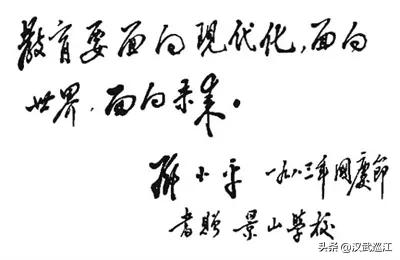 教育要面向現代化,面向
世界,面向未来。
邓小平 一九八三年國慶節
書贈 景山學校
头条 @汉武巡江